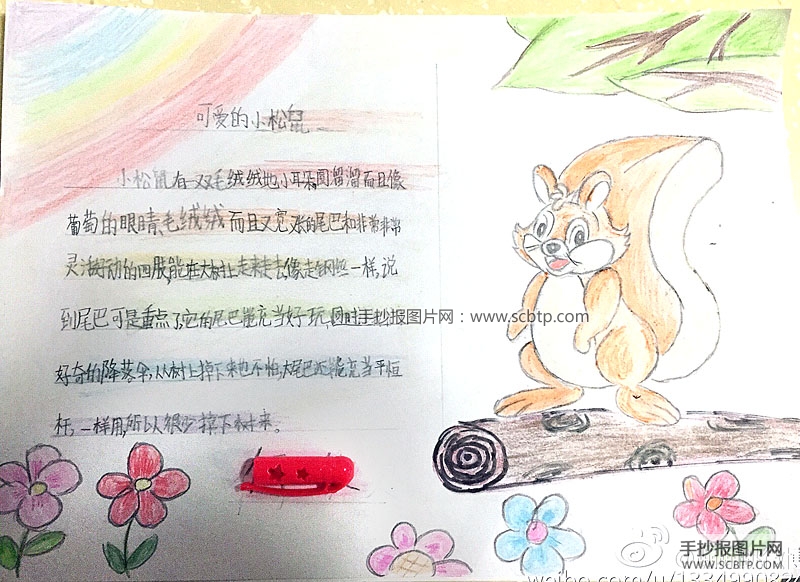 可爱的小松鼠
小松鼠有一双毛绒绒地小耳朵,圆溜溜而且像
葡萄的眼睛、毛绒绒而且又宽又长的尾巴和非常非常
灵活好动的四肢,能在大树上走来走去,像走钢丝一样,说
到尾巴可是重点了,它的尾巴能充当好玩, 手抄报图片网:www.scbtp.com
好奇的降落伞,从树上掉下来也不怕,大尾巴还能充当平恒
杆,一样用,所以很少掉下树来。
手抄报图片网
WWW.SCBTP.COM
weibo.com/u/133499082